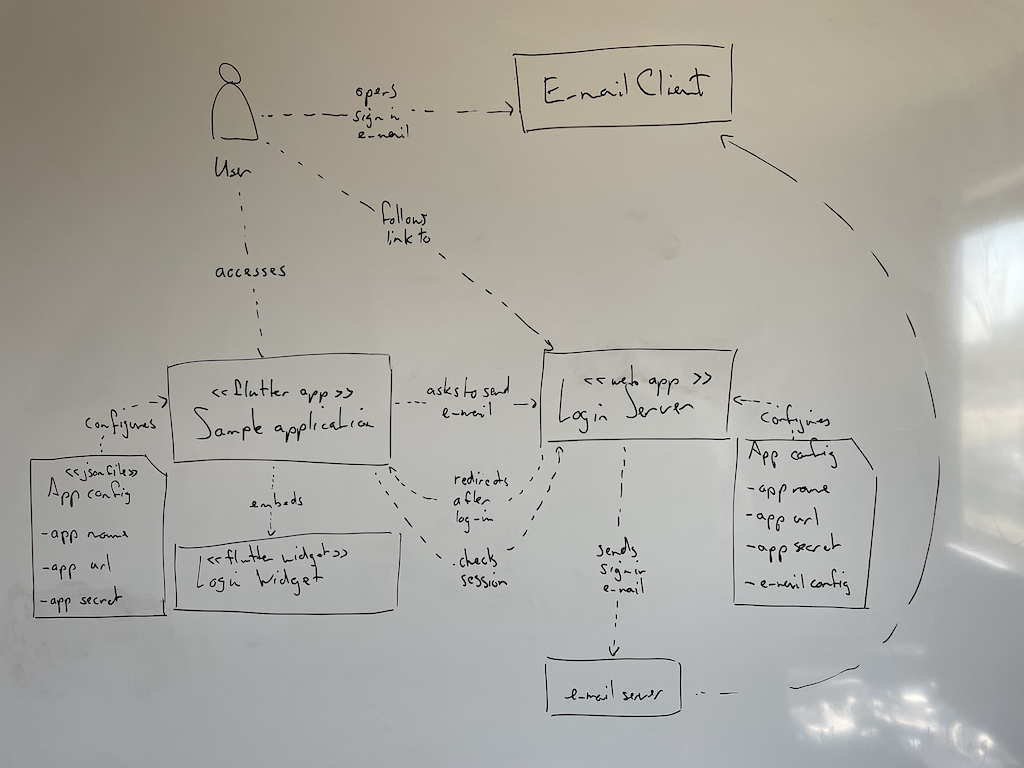 E-mail Client
opens
sign in
e-mail
User
follows
link to
accesses
<<flutter app>>
Sample application
asks to send
e-mail
<<web app>>
Login Server
configures
configures
<<json file>>
App config
-app name
-app url
-app secret
embeds
<<flutter widget>>
Login Widget
redirects
after
log-in
check
session
sends
sign-in
e-mail
App config
-app name
-app url
-app secret
-e-mail config
e-mail server